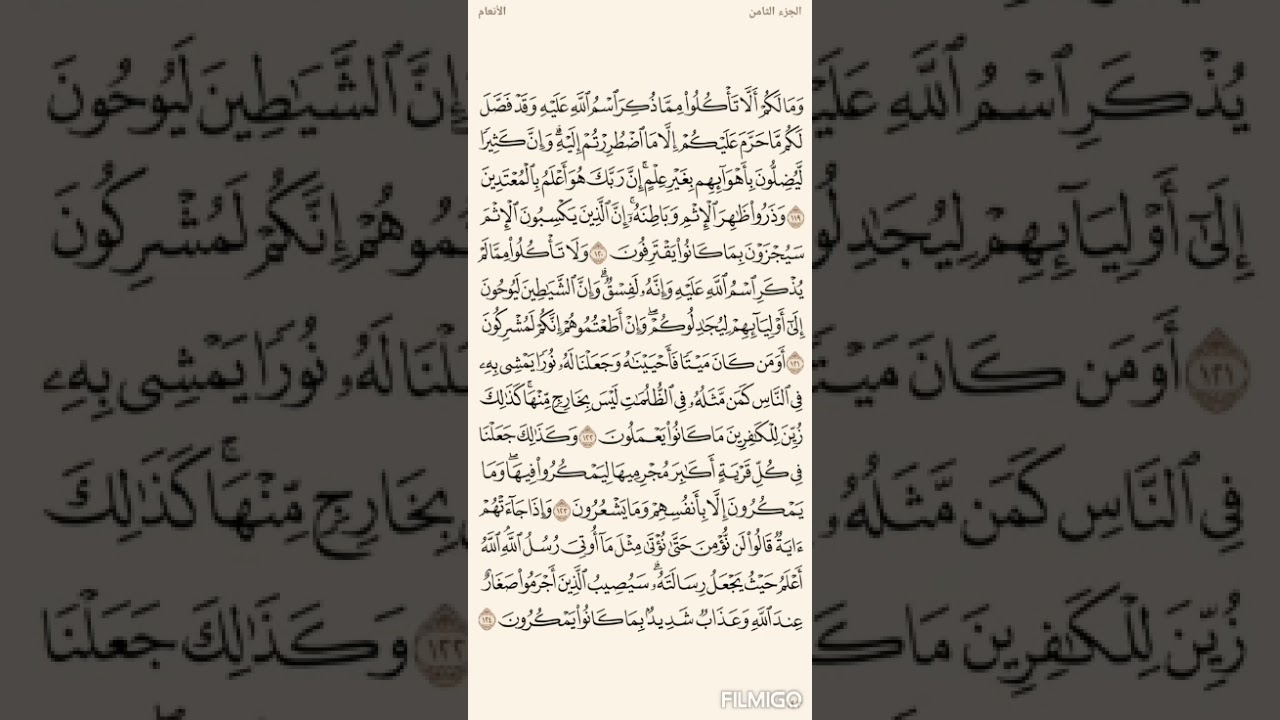 الجزء الثامن
الأنعام
وَمَا لَكُمْ أَلَّا تَأْكُلُوا۟ مِمَّا ذُكِرَ ٱسْمُ ٱللَّهِ عَلَيْهِ وَقَدْ فَصَّلَ
لَكُم مَّا حَرَّمَ عَلَيْكُمْ إِلَّا مَا ٱضْطُرِرْتُمْ إِلَيْهِ ۗ وَإِنَّ كَثِيرًا
لَّيُضِلُّونَ بِأَهْوَآئِهِم بِغَيْرِ عِلْمٍ ۗ إِنَّ رَبَّكَ هُوَ أَعْلَمُ بِٱلْمُعْتَدِينَ
١١٩ وَذَرُوا۟ ظَٰهِرَ ٱلْإِثْمِ وَبَاطِنَهُۥٓ ۚ إِنَّ ٱلَّذِينَ يَكْسِبُونَ ٱلْإِثْمَ
سَيُجْزَوْنَ بِمَا كَانُوا۟ يَقْتَرِفُونَ ١٢٠ وَلَا تَأْكُلُوا۟ مِمَّا لَمْ
يُذْكَرِ ٱسْمُ ٱللَّهِ عَلَيْهِ وَإِنَّهُۥ لَفِسْقٌ ۗ وَإِنَّ ٱلشَّيَٰطِينَ لَيُوحُونَ
إِلَىٰٓ أَوْلِيَآئِهِمْ لِيُجَٰدِلُوكُمْ ۖ وَإِنْ أَطَعْتُمُوهُمْ إِنَّكُمْ لَمُشْرِكُونَ
١٢١ أَوَمَن كَانَ مَيْتًا فَأَحْيَيْنَٰهُ وَجَعَلْنَا لَهُۥ نُورًا يَمْشِى بِهِۦ
فِى ٱلنَّاسِ كَمَن مَّثَلُهُۥ فِى ٱلظُّلُمَٰتِ لَيْسَ بِخَارِجٍ مِّنْهَا ۚ كَذَٰلِكَ
زُيِّنَ لِلْكَٰفِرِينَ مَا كَانُوا۟ يَعْمَلُونَ ١٢٢ وَكَذَٰلِكَ جَعَلْنَا
فِى كُلِّ قَرْيَةٍ أَكَٰبِرَ مُجْرِمِيهَا لِيَمْكُرُوا۟ فِيهَا ۖ وَمَا
يَمْكُرُونَ إِلَّا بِأَنفُسِهِمْ وَمَا يَشْعُرُونَ ١٢٣ وَإِذَا جَآءَتْهُمْ
ءَايَةٌ قَالُوا۟ لَن نُّؤْمِنَ حَتَّىٰ نُؤْتَىٰ مِثْلَ مَآ أُوتِىَ رُسُلُ ٱللَّهِ ٱللَّهُ
أَعْلَمُ حَيْثُ يَجْعَلُ رِسَالَتَهُۥ ۗ سَيُصِيبُ ٱلَّذِينَ أَجْرَمُوا۟ صَغَارٌ
عِندَ ٱللَّهِ وَعَذَابٌ شَدِيدٌۢ بِمَا كَانُوا۟ يَمْكُرُونَ ١٢٤
FILMIGO